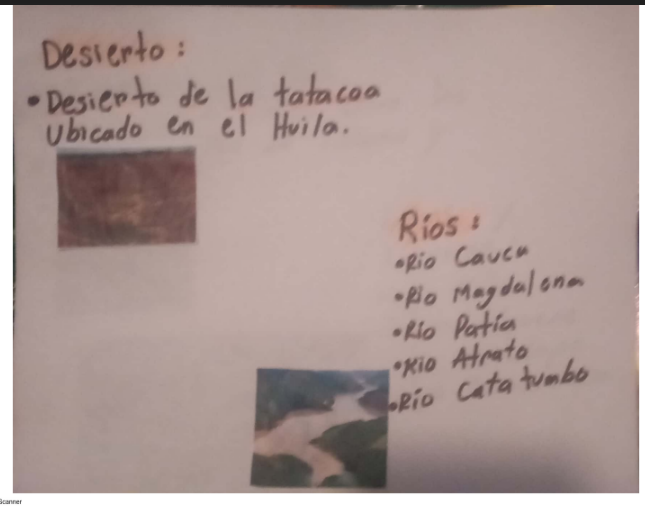 Desierto:
• Desierto de la tatacoa
Ubicado en el Huila.
Ríos:
• Río Cauca
• Río Magdalena
• Río Patía
• Río Atrato
• Río Catatumbo
Scanner